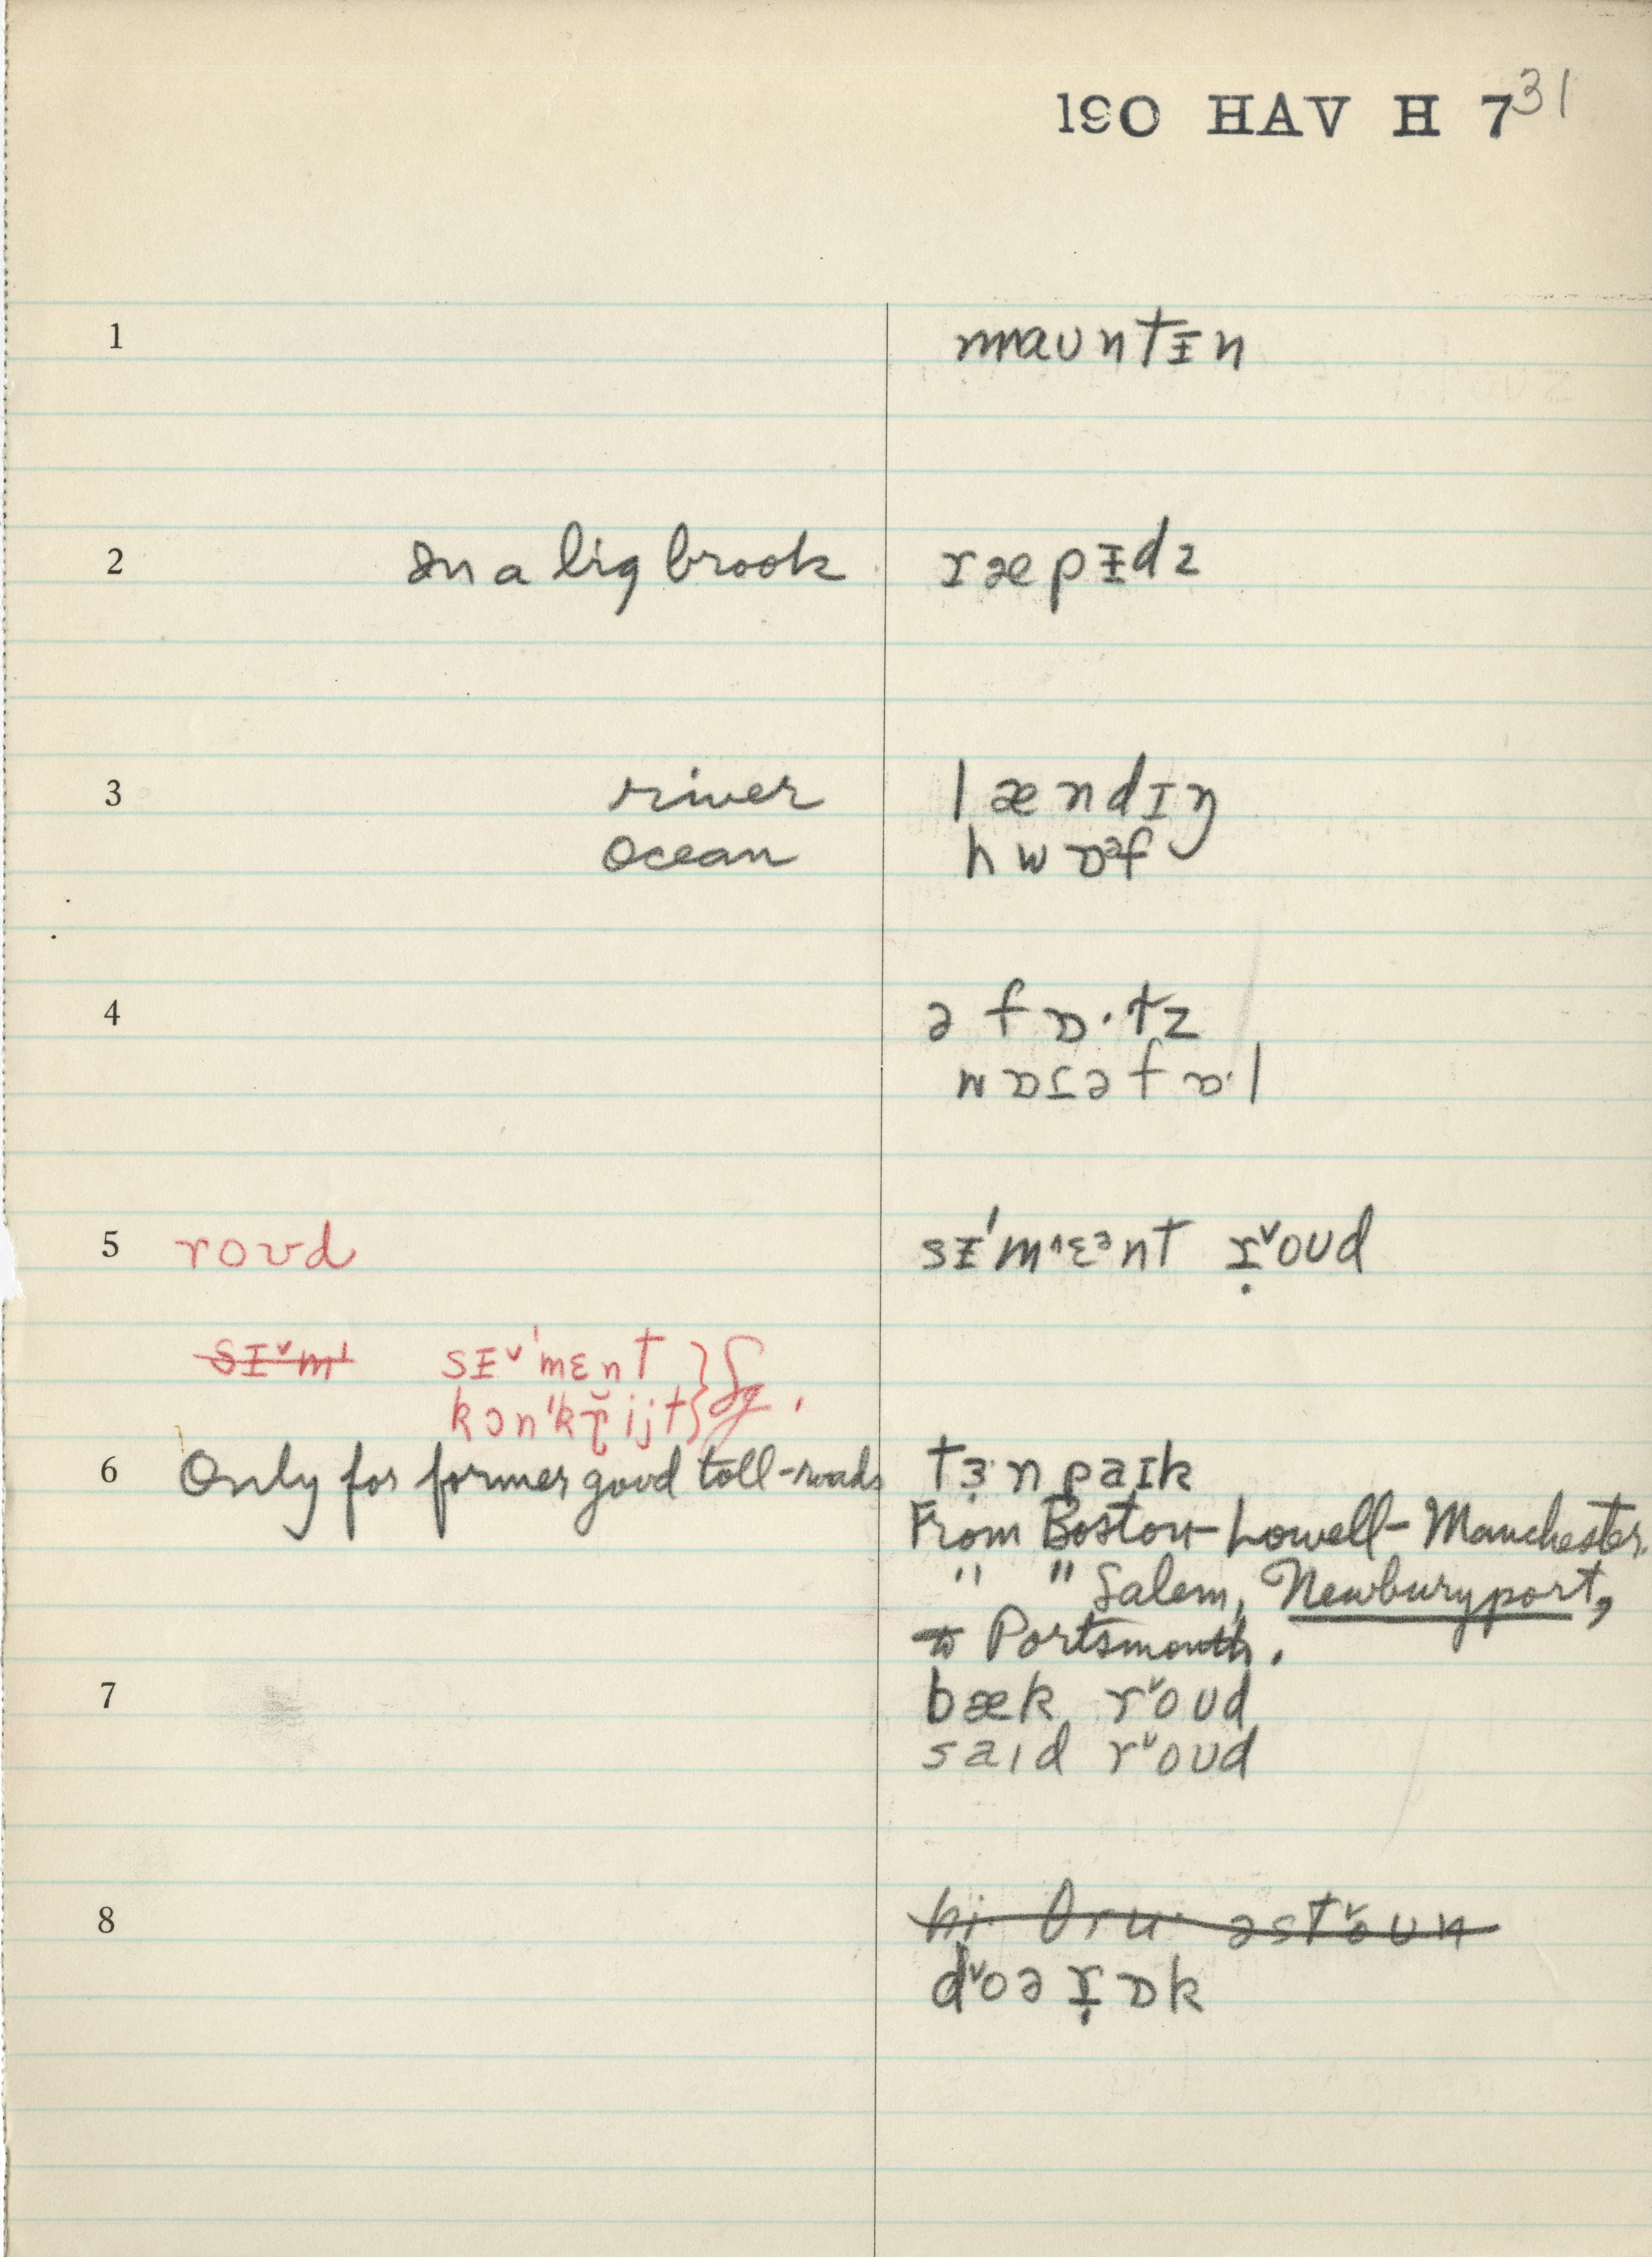 190 HAV H 7 31
1 maʊntɪ̵n
2 In a big brook ɪæpɪ̵dz
3 river lændɪŋ
ocean hwɒᵊf
4 ə fɒ·tz
wɒɾəfɒ·l
5 roʊd sɪ̵'m˄ɛᵊnt ɪ̣˅oʊd
sɪ̵˅m' sɪ̵˅'mɛnt
kɔn'kɽ̆ijt } Sg.
6 Only for former good toll-roads tɜ̣·npaɪk
From Boston-Lowell-Manchester.
" " Salem, Newburyport,
to Portsmouth.
7 bæk r˅oʊd
saɪd r˅oʊd
8 hi· θru· əst˅oʊn
d˅oə ɪ̣ɒk